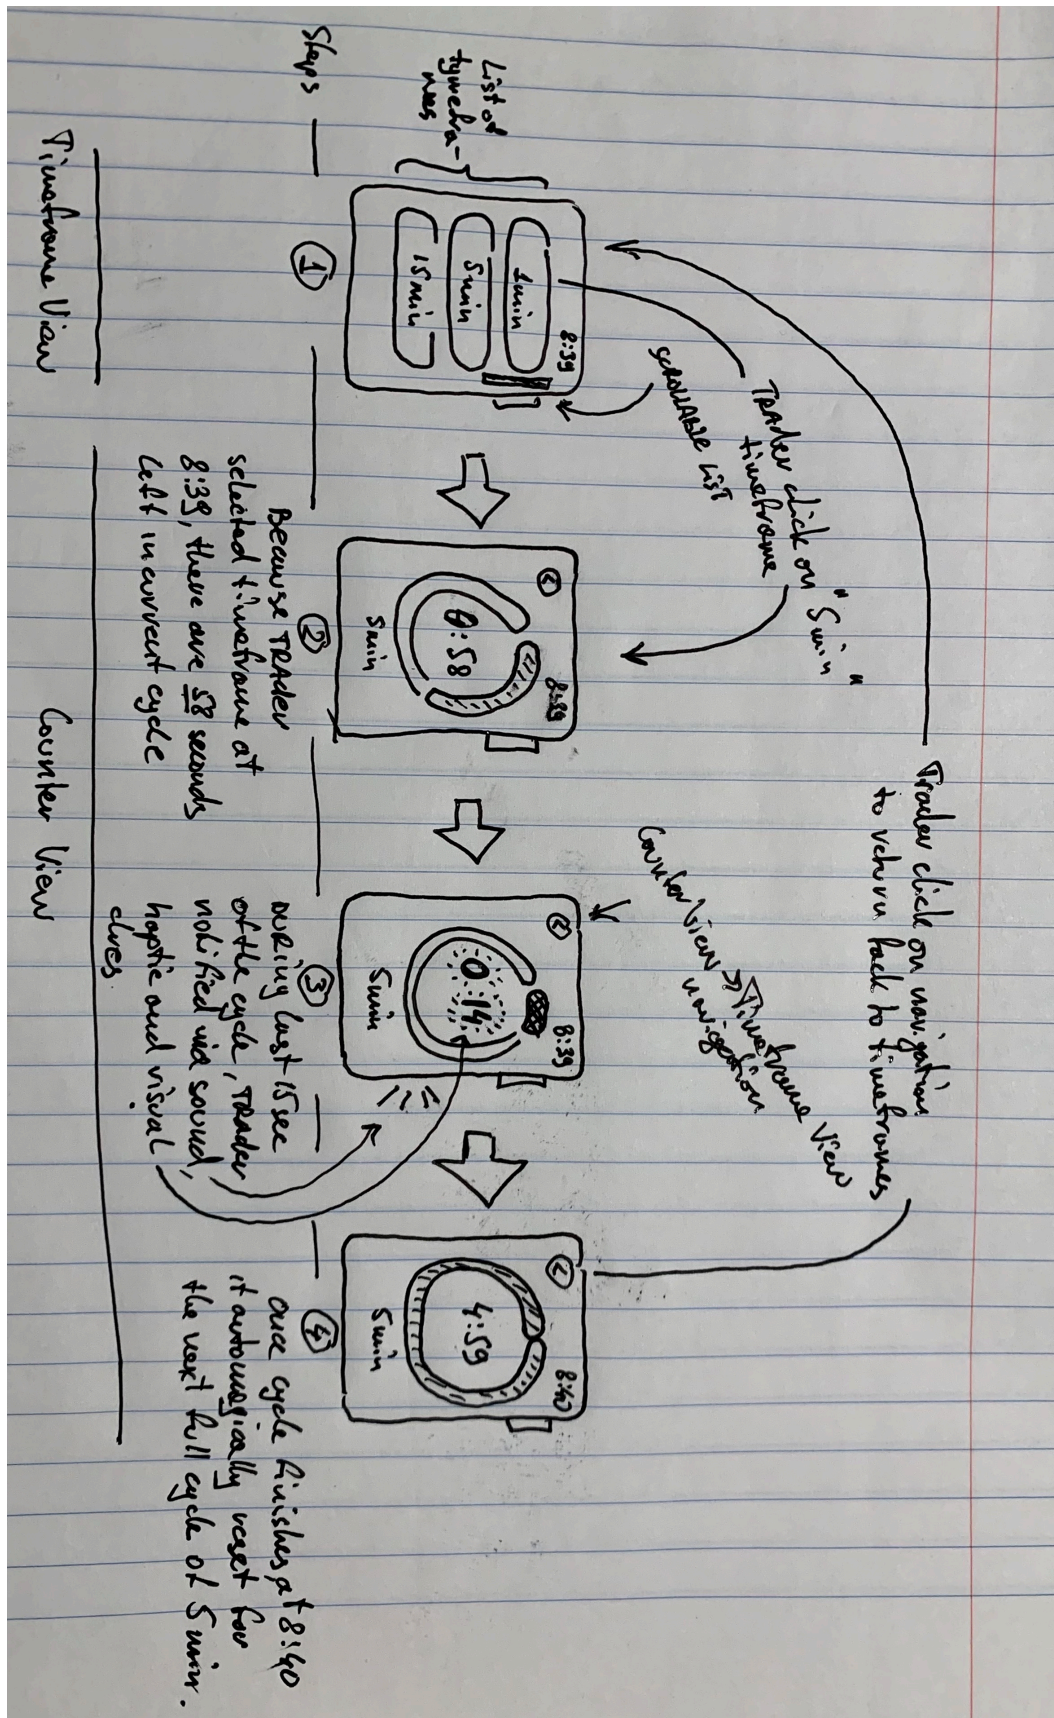 Trader click on navigation
to return back to timeframes
TRADER click on "5min"
timeframe
SCROLLABLE LIST
Counter View => Timeframe View
navigation
List of
tymefra-
mes
Steps
8:39
1min
5min
15min
1
<
8:39
0:58
5min
2
<
8:39
0:14
5min
3
<
8:40
4:59
5min
4
Because TRADER
selected timeframe at
8:39, there are 58 seconds
left in current cycle
DURING last 15 sec
of the cycle, TRADER
notified via sound,
haptic and visual
clues.
once cycle finishes at 8:40
it automagically reset for
the next full cycle of 5 min.
Timeframe View
Counter View